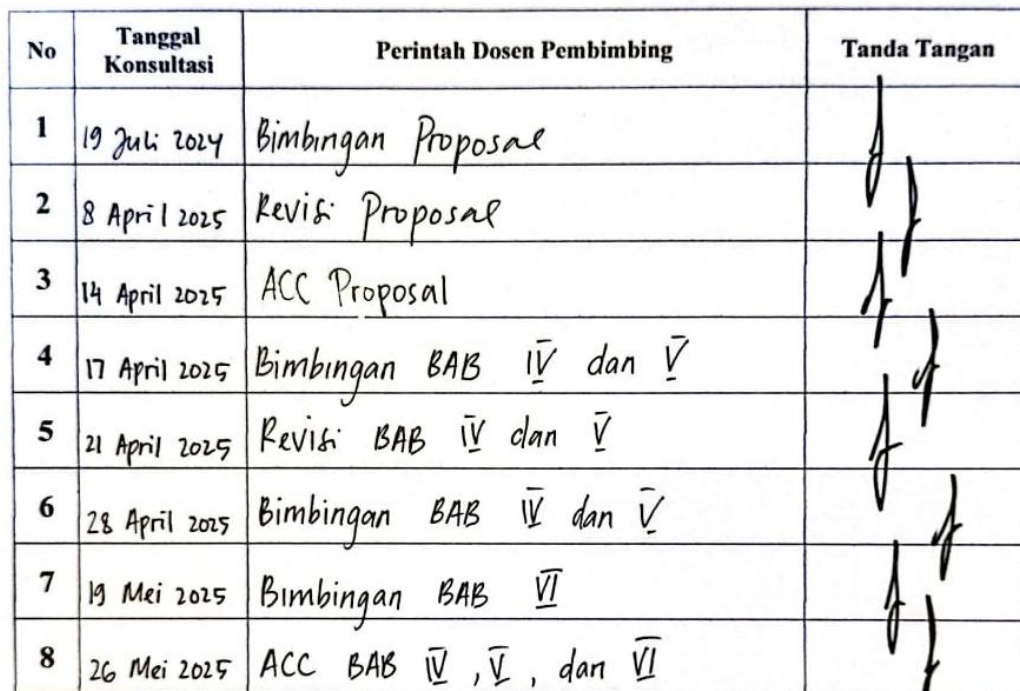 No Tanggal Konsultasi Perintah Dosen Pembimbing Tanda Tangan
1 19 Juli 2024 Bimbingan Proposal
2 8 April 2025 Revisi Proposal
3 14 April 2025 ACC Proposal
4 17 April 2025 Bimbingan BAB IV dan V
5 21 April 2025 Revisi BAB IV dan V
6 28 April 2025 Bimbingan BAB IV dan V
7 19 Mei 2025 Bimbingan BAB VI
8 26 Mei 2025 ACC BAB IV, V, dan VI